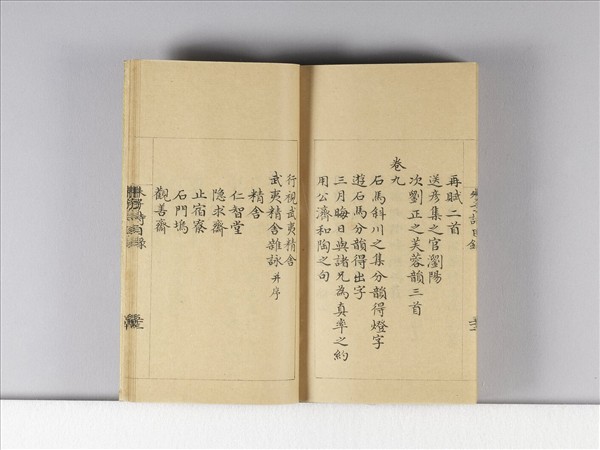 再賦二首
送彥集之官瀏陽
次劉正之芙蓉韻三首
卷九
石馬斜川之集分韻得燈字
遊石馬分韻得出字
三月晦日與諸兄為真率之約
用公濟和陶之句
行視武夷精舍
武夷精舍雜詠并序
精舍
仁智堂
隐求齋
止宿寮
石門塢
觀善齋